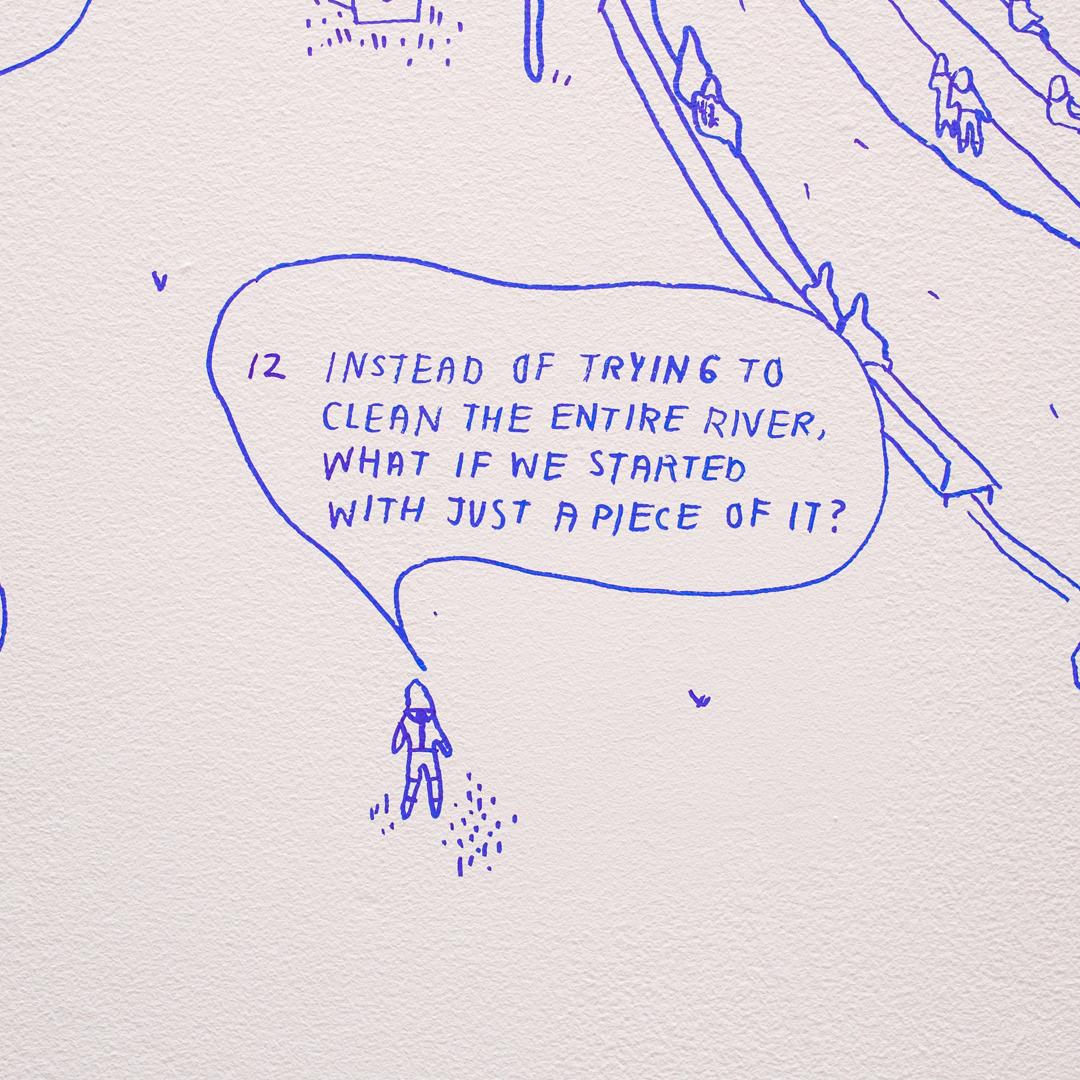 12 INSTEAD OF TRYING TO
CLEAN THE ENTIRE RIVER,
WHAT IF WE STARTED
WITH JUST A PIECE OF IT?